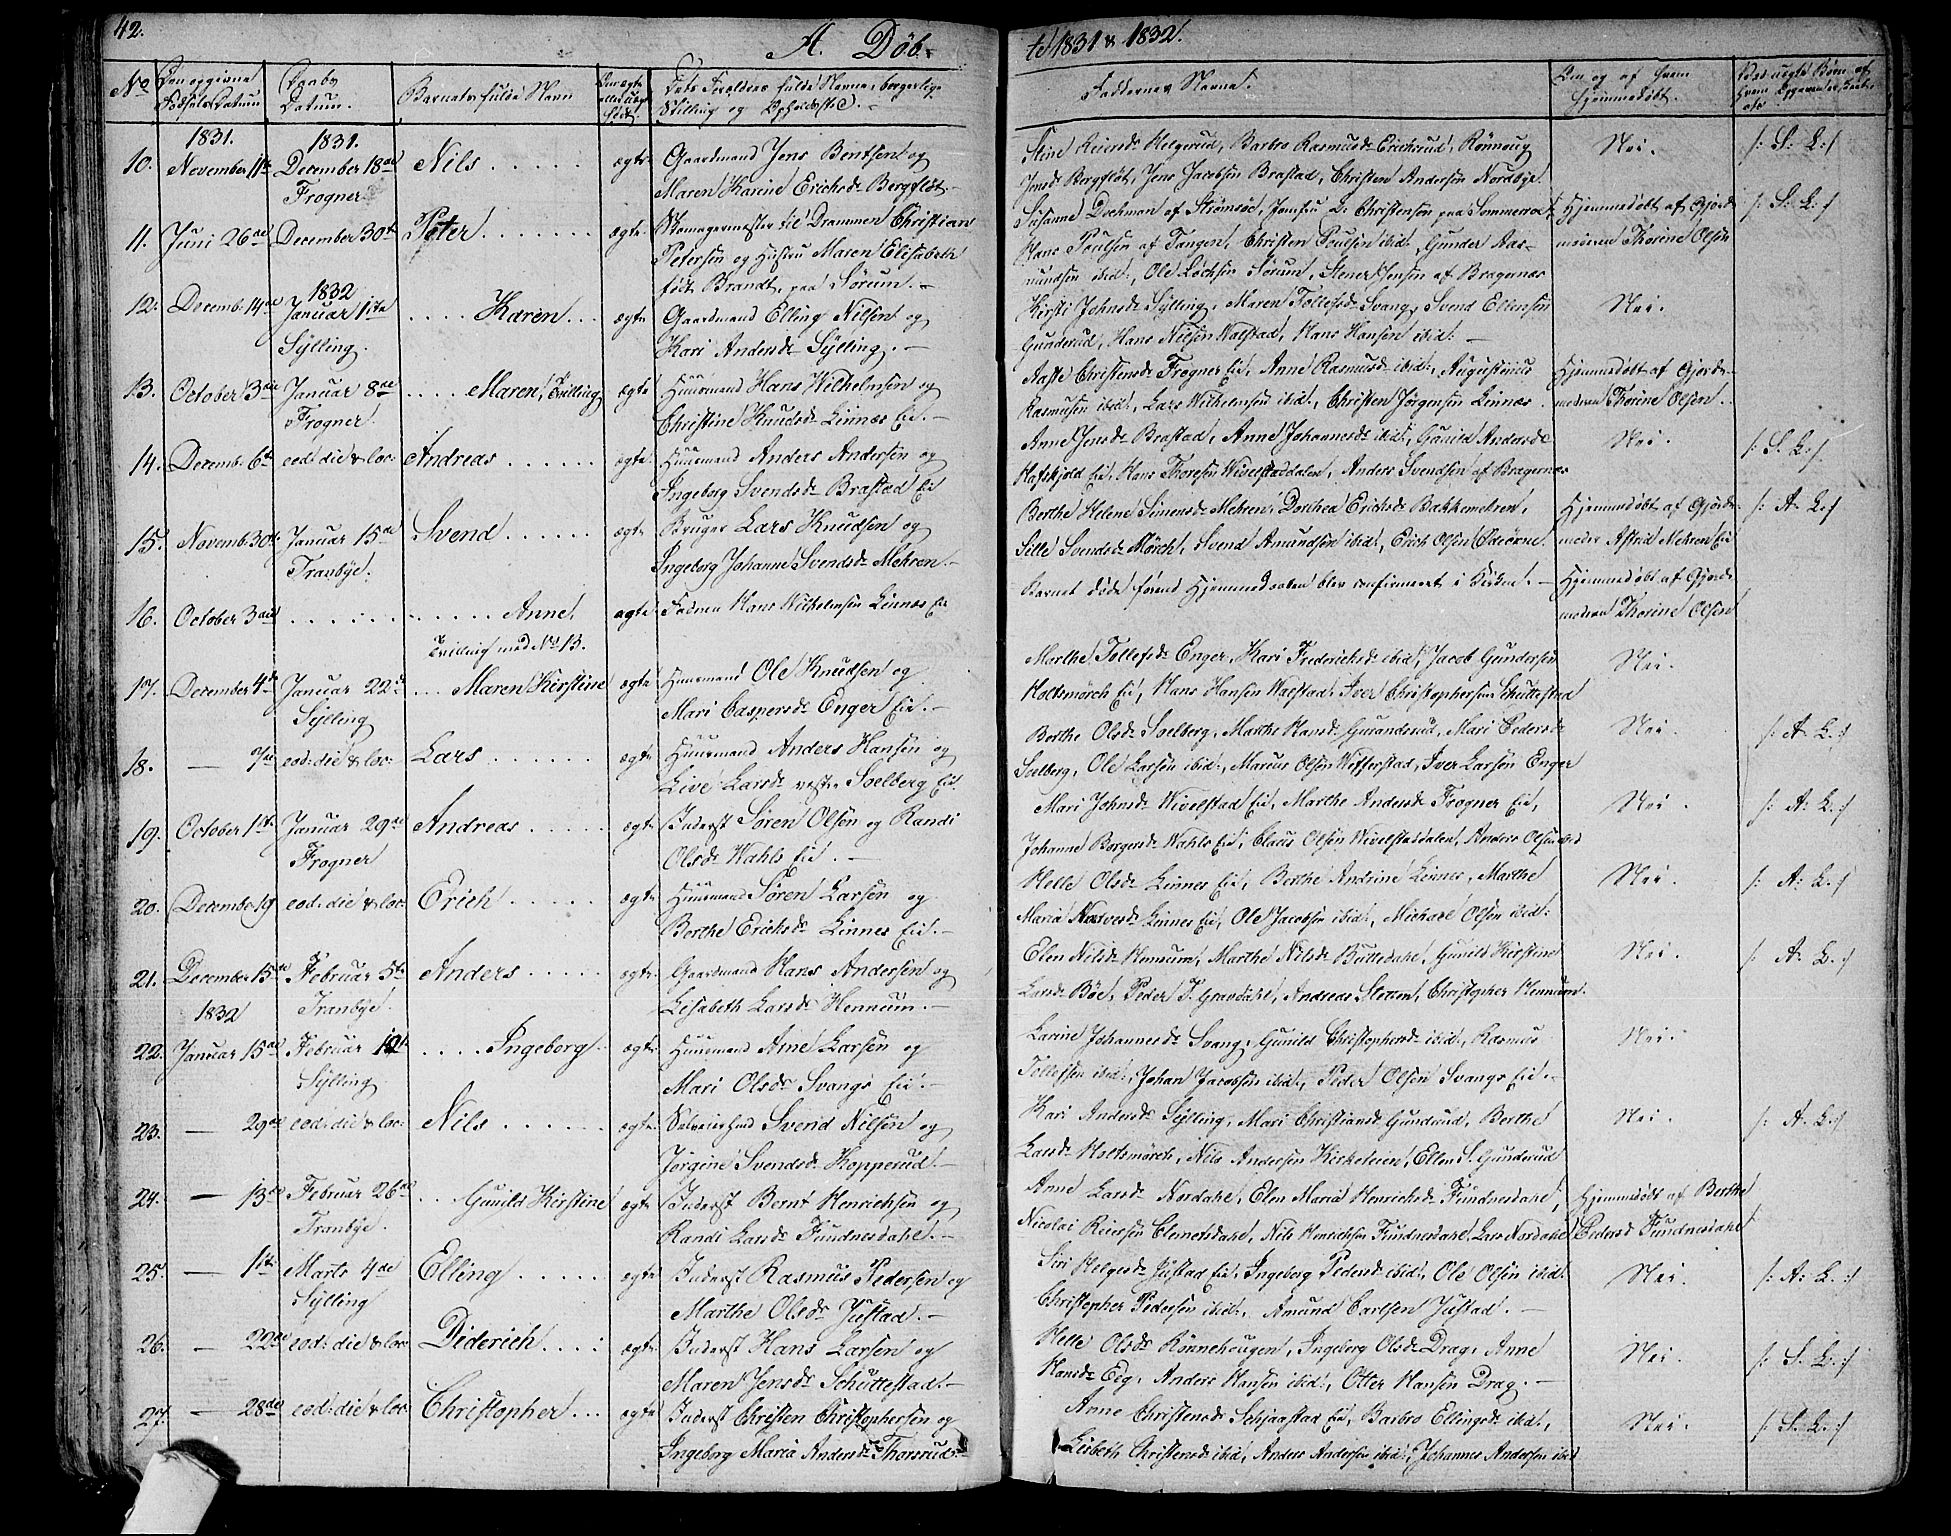 42.
A. Døb-
te 1831 & 1832.
No
Den opgivne
Fødsels Datum
Daabs
Datum.
Barnets fulde Navn
Det's Forældres fulde Navne, borgerlige
Stilling og Opholdsted. -
Faddernes Navne.
Om og af hvem
hjemmedøbt.
1831.
1831.
10. November 11te December 18de Nils . . . . . . ægte Gaardmand Jens Bentsen og
Frogner.
Maren Karine Erichsd: Bergfløt. -
Stine Reiersd: Helgerud, Barbro Rasmusd: Erichsrud, Rønnoug
Jensd: Bergfløt, Jens Jacobsen Brastad, Christen Andersen Nordbye.
Nei. /: S: L: /
11. Juni 26de December 30te Peter . . . . . . . ægte Skomagermester til Drammen Christian
Petersen og Hustru Maren Elisabeth
født Brandt, paa Sørum. -
Susanne Dochman af Strømsøe, Jomfru L. Christensen paa Sommeroe
Hans Poulsen af Tangen, Christen Poulsen ibid:, Gunder Aas-
mundsen ibid:, Ole Lochsen Sørum, Stener Jensen af Bragernæs
Hjemmedøbt af Gjorde-
moderen Thorine Olsen
/: S: L: /
1832
12. Decemb: 14de Januar 1ste . . . . Karen . . ægte Gaardmand Elling Nilsen og
Sylling.
Kari Andersd: Sylling. -
Kirsti Johnsd: Sylling, Maren Tollefsd: Svang, Svend Ellensen
Gunderud, Hans Nilsen Walstad, Hans Hansen ibid: -
Nei.
13. October 3die Januar 8de . . . . Maren, Tvilling ægte Huusmand Hans Wilhelmsen og
Frogner.
Christine Knudsd: Linnæs Eie. -
Aaste Christensd: Frogner Eie, Anne Rasmusd: ibid:, Augustinus
Rasmusen ibid:, Lars Wilhelmsen ibid:, Christen Jørgensen Linnæs
Hjemmedøbt af Gjorde-
moderen Thorine Olsen.
14. Decemb: 6te eod: die & loc: Andreas . . . . . . ægte Huusmand Anders Andersen og
Ingeborg Svendsd: Brastad Eie
Anne Jensd: Brastad, Anne Johannesd: ibid:, Gunild Andersd:
Hafskjold Eie, Hans Thoresen Wivelstaddalen, Anders Svendsen af Bragernæs
Nei. /: S. L: /
15. Novemb: 30te Januar 15de Svend . . . . . . ægte Bruger Lars Knudsen og
Tranbye.
Ingeborg Johanne Svendsd: Mehren. -
Berthe Helene Simensd: Mehren, Dorthea Erichsd: Bakkemehren,
Sille Svendsd: Mørch, Svend Amundsen ibid:, Erich Olsen Oderne.
Hjemmedøbt af Gjorde-
moder Astrid Mehren Eie
/: A: L: /
16. October 3die . . . . . . . . . . . . Anne, ægte Faderen Hans Wilhelmsen Linnæs Eie
Tvilling med No 13.
Barnet døde førend Hjemmedaaben blev confirmeert i Kirken. -
Hjemmedøbt af Gjorde-
moderen Thorine Olsen
17. December 4de Januar 22de . . . Maren Kirstine ægte Huusmand Ole Knudsen og
Sylling
Mari Caspersd: Enger Eie. -
Marthe Tollefsd: Enger, Kari Fredericksd: ibid:, Jacob Gundersen
Holtsmørch Eie, Hans Hansen Walstad, Iver Christophersen Schuttestad
Nei.
18. — 7de eod: die & loc: Lars . . . . . . ægte Huusmand Anders Hansen og
Live Larsd: vestre Solberg Eie.
Berthe Olsd: Solberg, Marthe Hansd: Gurandsrud, Mari Pedersd:
Solberg, Ole Larsen ibid:, Marcus Olsen Wefferstad, Iver Larsen Enger
Nei. /: A: L: /
19. October 1ste Januar 29de Andreas . . . . . ægte Inderst Søren Olsen og Randi
Frogner
Olsd: Wahls Eie. -
Mari Johnsd: Wivelstad Eie, Marthe Andersd: Frogner Eie,
Johanne Børgersd: Wahls Eie, Claus Olsen Wivelstaddalen, Anders Olsen ibid
Nei. /: A: L: /
20. December 19 eod: die & loc: Erich . . . . . ægte Huusmand Søren Larsen og
Berthe Erichsd: Linnes Eie. -
Helle Olsd: Linnes Eie, Berthe Andrine Linnes, Marthe
Maria Linnes Eie, Ole Jacobsen ibid:, Michael Olsen ibid:
Nei. /: A: L: /
21. December 15de Februar 5te Anders . . . . . ægte Gaardmand Hans Andersen og
Tranbye.
Lisabeth Larsd: Hennum. -
Elen Nilsd: Hennum, Marthe Nilsd: Butterdahl, Gunild Kirstine
Larsd: Bøe, Peder T. Gravdahl, Andreas Sletten, Christopher Hennum.
Nei. /: A: L: /
1832
22. Januar 15de Februar 12te . . . . Ingeborg ægte Huusmand Arne Larsen og
Sylling.
Mari Olsd: Svangs Eie. -
Karine Johannesd: Svang, Gunild Christophersd: ibid:, Rasmus
Tollefsen ibid:, Johan Jacobsen ibid:, Peder Olsen Svangs Eie. -
Nei.
23. — 29de eod: die & loc: Nils . . . . . . ægte Selveierbond Svend Nilsen og
Jørgine Svendsd: Kopperud. -
Kari Andersd: Sylling, Mari Christiansd: Gunderud, Berthe
Larsd: Holtsmørch, Nils Andersen Kirkeleien, Ellen S. Gunderud
Nei. /: A: L: /
24. — 13de Februar 26de . . Gunild Kirstine ægte Inderst Bernt Henrichsen og
Tranbye.
Randi Larsd: Fundnesdahl. -
Anne Larsd: Nordahl, Elen Maria Henrichsd: Fundnesdahl,
Nicolai Reiersen Clemetsdahl, Nils Henrichsen Fundnesdahl, Lars Nordahl
Hjemmedøbt af Berthe
Pedersd Fundnesdahl
25. — 1ste Marts 4de Elling . . . . . ægte Inderst Rasmus Pedersen og
Sylling
Marthe Olsd: Justad. -
Siri Helgesd: Justad Eie, Ingeborg Pedersd: ibid:, Ole Olsen ibid:
Christopher Pedersen ibid:, Amund Carlsen Justad. -
Nei. /: A: L. :/
26. — 22de eod: die & loc: Diderich . . . : ægte Inderst Hans Larsen og
Maren Jensd: Schuttestad. -
Helle Olsd: Rønnehougen, Ingeborg Olsd: Drag, Anne
Hansd: Eeg, Anders Hansen ibid:, Otter Hansen Drag. -
Nei. /: S. L. :/
27. — 28de eod: die & loc: Christopher . . . ægte Inderst Christen Christophersen og
Ingeborg Maria Andersd: Thorsrud: -
Anne Christensd: Schjaastad Eie, Barbro Ellingsd: ibid:,
Lisbeth Christensd: ibid:, Anders Andersen ibid:, Johannes Andersen ibid:
Nei. /: S. L. :/